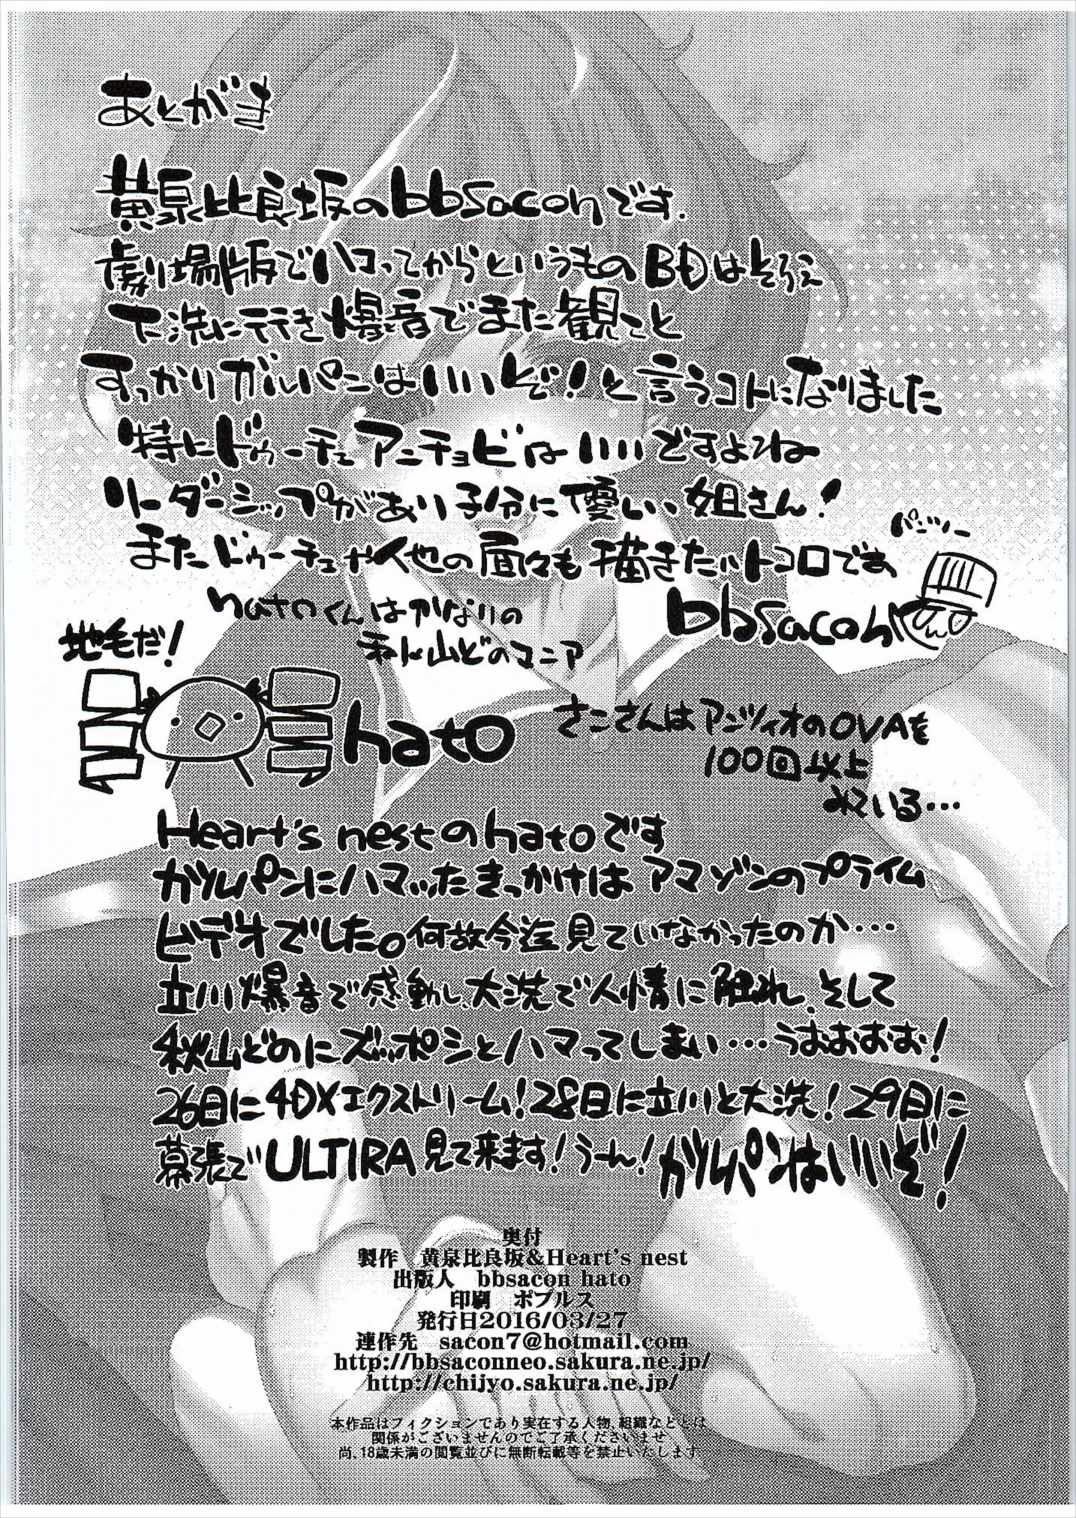 あとがき
黄泉比良坂のbbsaconです.
劇場版でハマってからというものBDはそろえ
大洗に行き爆音でまた観てと
すっかりガルパンはいいぞ！と言うコトになりました
特にドゥーチェアンチョビはいいですよね
リーダーシップがあり子分に優しい、姐さん！
またドゥーチェや他の面々も描きたいトコロです
パンツァー
bbsacon
hatoくんはかなりの
秋山どのマニア
地毛だ！
hato
さこさんはアンツィオのOVAを
100回以上
みている…
Heart's nestのhatoです
ガルパンにハマったきっかけはアマゾンのプライム
ビデオでした。何故今迄見ていなかったのか…
立川爆音で感動し、大洗で人情に触れ、そして
秋山どのにズッポシとハマってしまい…うおおおお！
26日に4DXエクストリーム！28日に立川と大洗！29日に
幕張でULTIRA見て来ます！うーん！ガルパンはいいぞ！
奥付
製作　黄泉比良坂&Heart's nest
出版人　bbsacon hato
印刷　ポプルス
発行日2016/03/27
連作先　sacon7@hotmail.com
http://bbsaconneo.sakura.ne.jp/
http://chijyo.sakura.ne.jp/
本作品はフィクションであり実在する人物、組織などとは
関係がございませんのでご了承くださいませ
尚、18歳未満の閲覧並びに無断転載等を禁止いたします